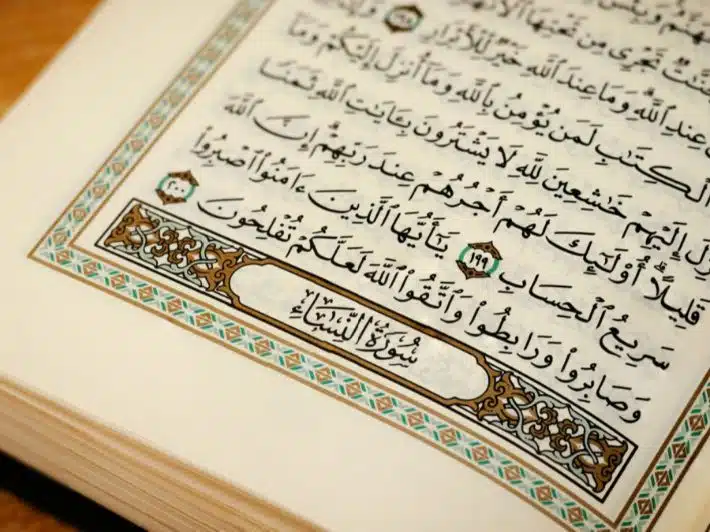 وَبِئْسَ
تَجْرِى مِن تَحْتِهَا ٱلْأَنْهَٰرُ
عِندِ ٱللَّهِ ۗ وَمَا عِندَ ٱللَّهِ خَيْرٌ لِّلْأَبْرَارِ ١٩٨
ٱلْكِتَٰبِ لَمَن يُؤْمِنُ بِٱللَّهِ وَمَآ أُنزِلَ إِلَيْكُمْ وَمَآ
أُنزِلَ إِلَيْهِمْ خَٰشِعِينَ لِلَّهِ لَا يَشْتَرُونَ بِـَٔايَٰتِ ٱللَّهِ ثَمَنًا
قَلِيلًا ۗ أُو۟لَٰٓئِكَ لَهُمْ أَجْرُهُمْ عِندَ رَبِّهِمْ ۗ إِنَّ ٱللَّهَ
سَرِيعُ ٱلْحِسَابِ ١٩٩ يَٰٓأَيُّهَا ٱلَّذِينَ ءَامَنُوا۟ ٱصْبِرُوا۟
وَصَابِرُوا۟ وَرَابِطُوا۟ وَٱتَّقُوا۟ ٱللَّهَ لَعَلَّكُمْ تُفْلِحُونَ ٢٠٠
سُورَةُ النِّسَاءِ